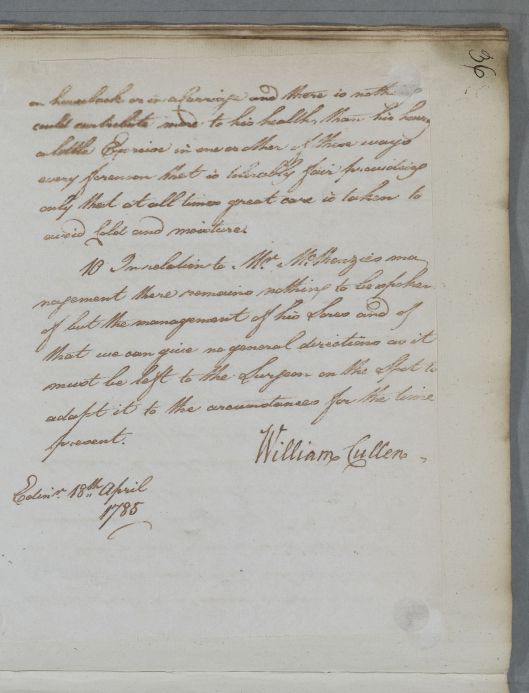 36
on horseback or in a Carriage and there is noth
could contribute more to his health than his having
a little Exercise in one or other of these ways
every forenoon that is tolerably fair providing
only that at all times great care is taken to
avoid Cold and moisture.
10 In relation to Mr. McKenzies ma
nagement there remains nothing to be spoken
of but the management of his Sores and of
that we can give no general directions as it
must be left to the Surgeon on the Spot to
adapt it to the circumstances for the time
present.
William Cullen
Edinr. 18th April
1785